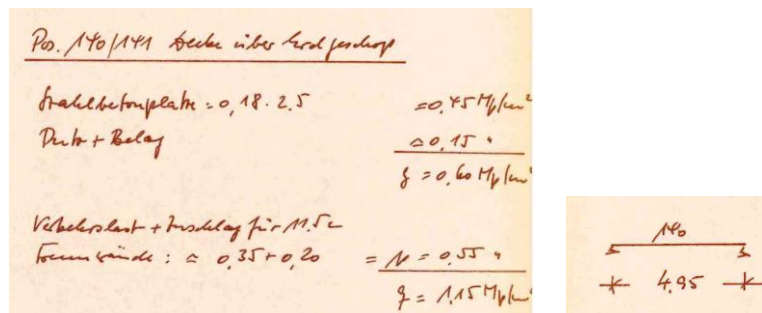 Pos. 140/141 Decke über Erdgeschoß
Stahlbetonplatte = 0,18 · 2,5 = 0,45 Mp/m²
Putz + Belag ≙ 0,15 "
g = 0,60 Mp/m²
Verkehrslast + Zuschlag für 11,5er
Trennwände : ≙ 0,35 + 0,20 = p = 0,55 "
q = 1,15 Mp/m²
140
4,95